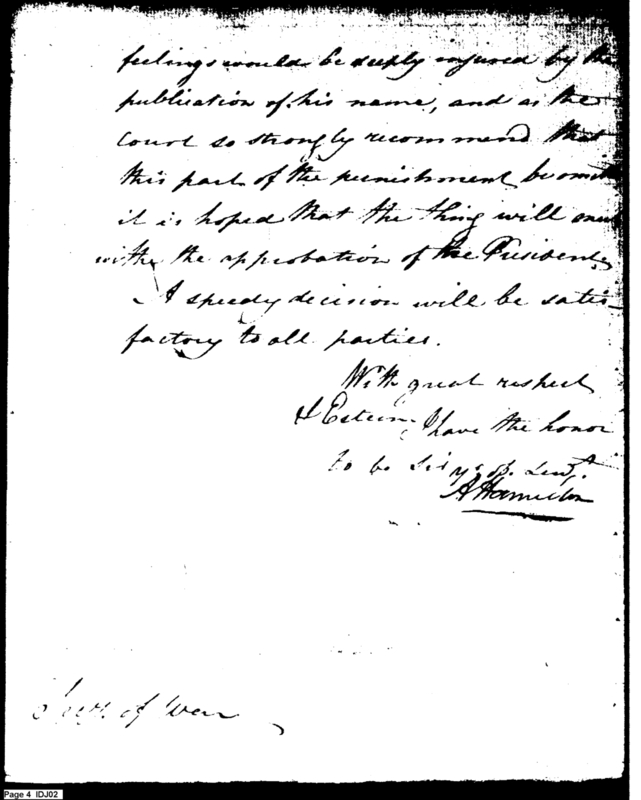 feelings would be deeply injured by the
publication of his name, and as the
Court so strongly recommend that
this part of the punishment be omit
it is hoped that the thing will meet
with the approbation of the President
A speedy decision will be satis-
factory to all parties.
With great respect
& Esteem, I have the honor
to be Sir yr. ob. Servt.
A Hamilton
Secy. of War
Page 4 IDJ02